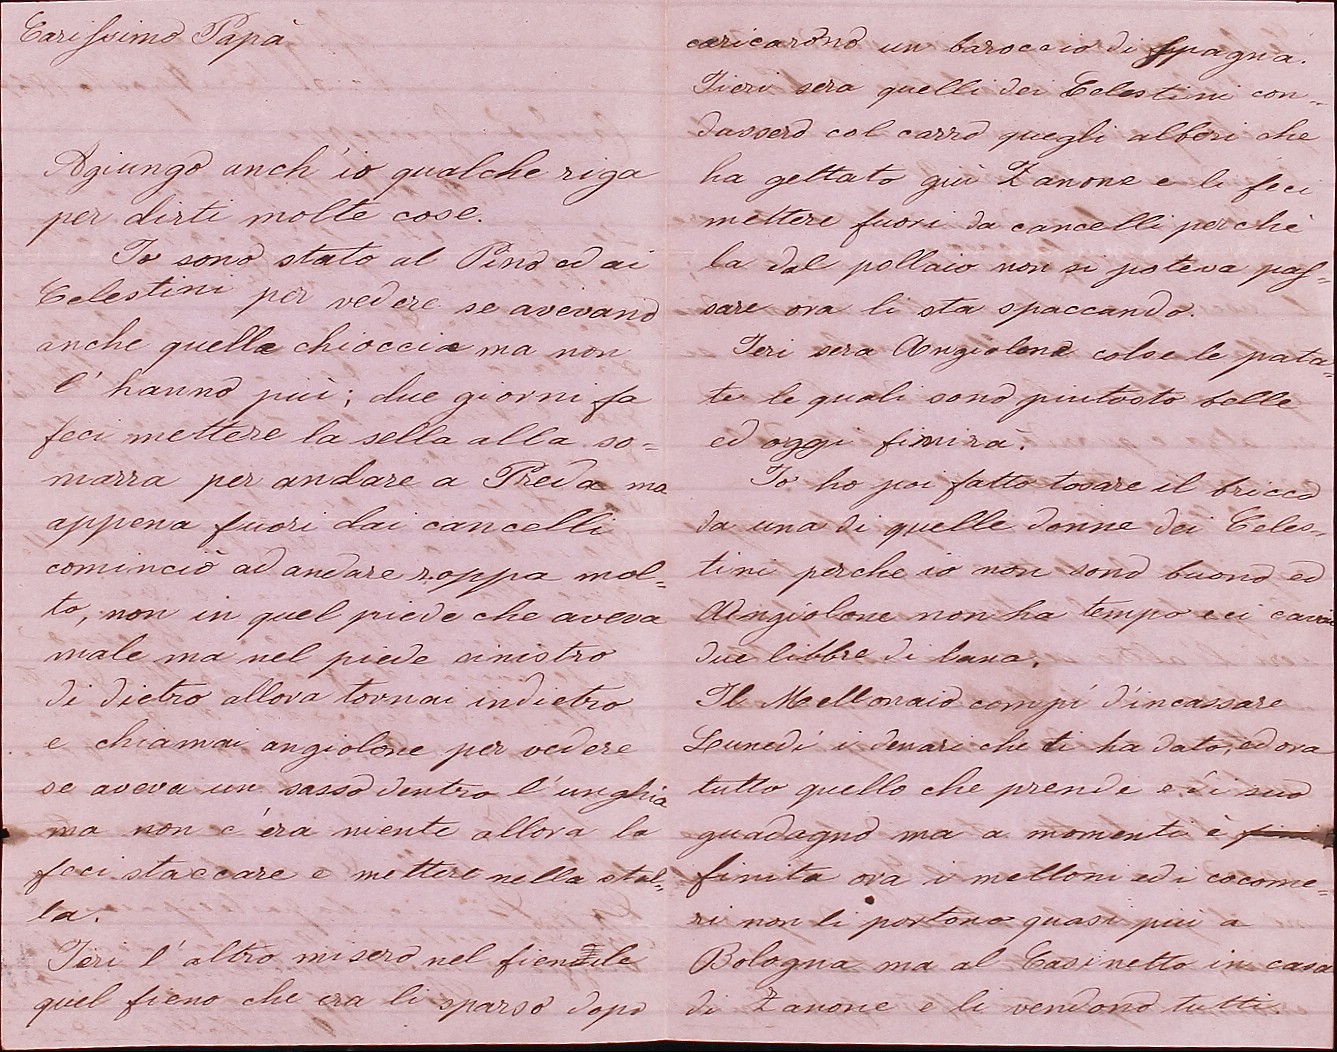 Carissimo Papà
Agiungo anch'io qualche riga
per dirti molte cose.
Io sono stato al Pino ed ai
Celestini per vedere se avevano
anche quella chioccia ma non
l'hanno più; due giorni fa
feci mettere la sella alla so=
marra per andare a Preda ma
appena fuori dai cancelli
cominciò ad andare zoppa mol=
to, non in quel piede che aveva
male ma nel piede sinistro
di dietro allora tornai indietro
e chiamai angiolone per vedere
se aveva un sasso dentro l'unghia
ma non c'era niente allora la
feci staccare e mettere nella stal=
la.
Ieri l'altro misero nel fienile
quel fieno che era li sparso dopo
caricarono un baroccio di spagna.
Fieri sera quelli dei Celestini con=
dussero col carro quegli alberi che
ha gettato giù Zanone e li feci
mettere fuori da cancelli perchè
la dal pollaio non si poteva pas=
sare ora li sta spaccando.
Ieri sera Angiolone colse le pata=
te le quali sono piutosto belle
ed oggi finirà.
Io ho poi fatto tosare il bricco
da una di quelle donne dei Celes=
tini perche io non sono buono ed
Angiolone non ha tempo e ci cavai
due libbre di lana.
Il Mellonaio compì d'incassare
Lunedì i denari che ti ha dato, ed ora
tutto quello che prende è di suo
guadagno ma a momenti è
finita ora i melloni ed i cocome=
ri non li portono quasi più a
Bologna ma al Casinetto in casa
di Zanone e li vendono tutti.